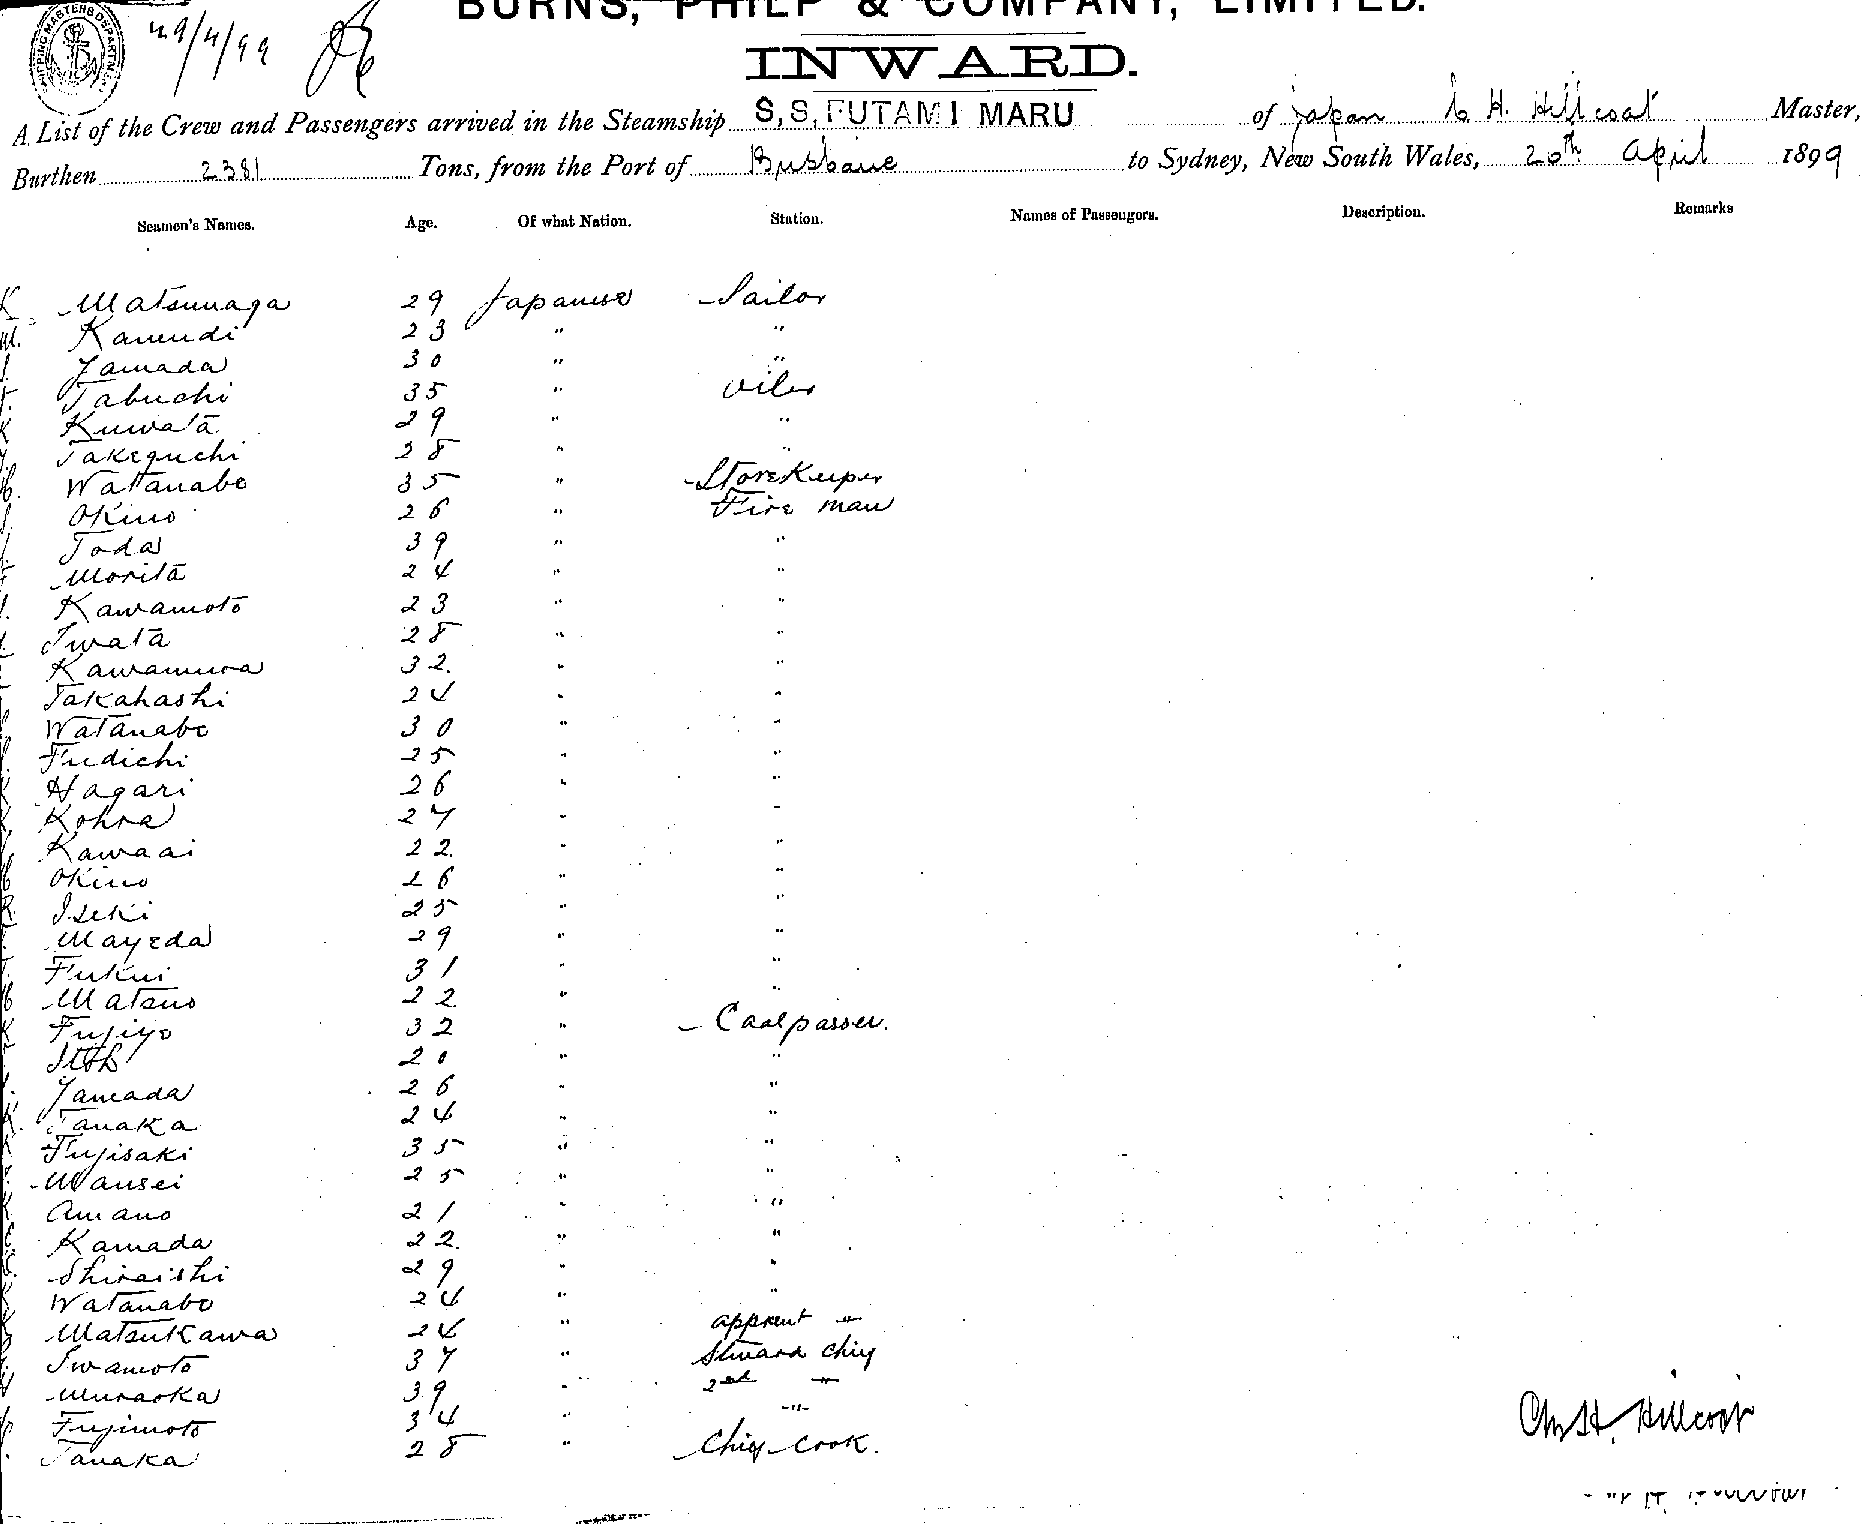 BURNS, PHILP & COMPANY, LIMITED.
SHIPPING MASTERS DEPARTMENT
29/4/99
INWARD.
A List of the Crew and Passengers arrived in the Steamship S.S. FUTAMI MARU of Japan C H. Hillcoat Master,
Burthen 2381 Tons, from the Port of Brisbane to Sydney, New South Wales, 20th April 1899
Seamen's Names. Age. Of what Nation. Station. Names of Passengers. Description. Remarks
K Matsunaga 29 Japanese Sailor
M. Kanendi 23 " "
Yamada 30 " "
T. Tabuchi 35 " Oiler
K Kuwata 29 " "
Takeguchi 28 " "
Watanabe 35 " Storekeeper
Okino 26 " Fire man
Toda 39 " "
Morita 24 " "
Kawamoto 23 " "
Iwata 28 " "
Kawamura 32. " "
Takahashi 24 " "
Watanabe 30 " "
Fudichi 25 " "
Hagari 26 " "
Kohra 27 " "
Kawaai 22. " "
Okino 26 " "
Iseki 25 " "
Mayeda 29 " "
Fukui 31 " "
Matsuo 22 " "
K Fujiyo 32 " Coalpasser.
Itoh 20 " "
Yamada 26 " "
K. Tanaka 24 " "
Fujisaki 35 " "
Mansei 25 " "
Amano 21 " "
Kamada 22. " "
Shiraishi 29 " "
Watanabe 24 " "
Matsukawa 24 " apprent "
Iwamoto 37 " Steward Chief
Muraoka 39 " 2nd "
Fujimoto 34 " "
Tanaka 28 " Chief Cook.
Chs H. Hillcoat